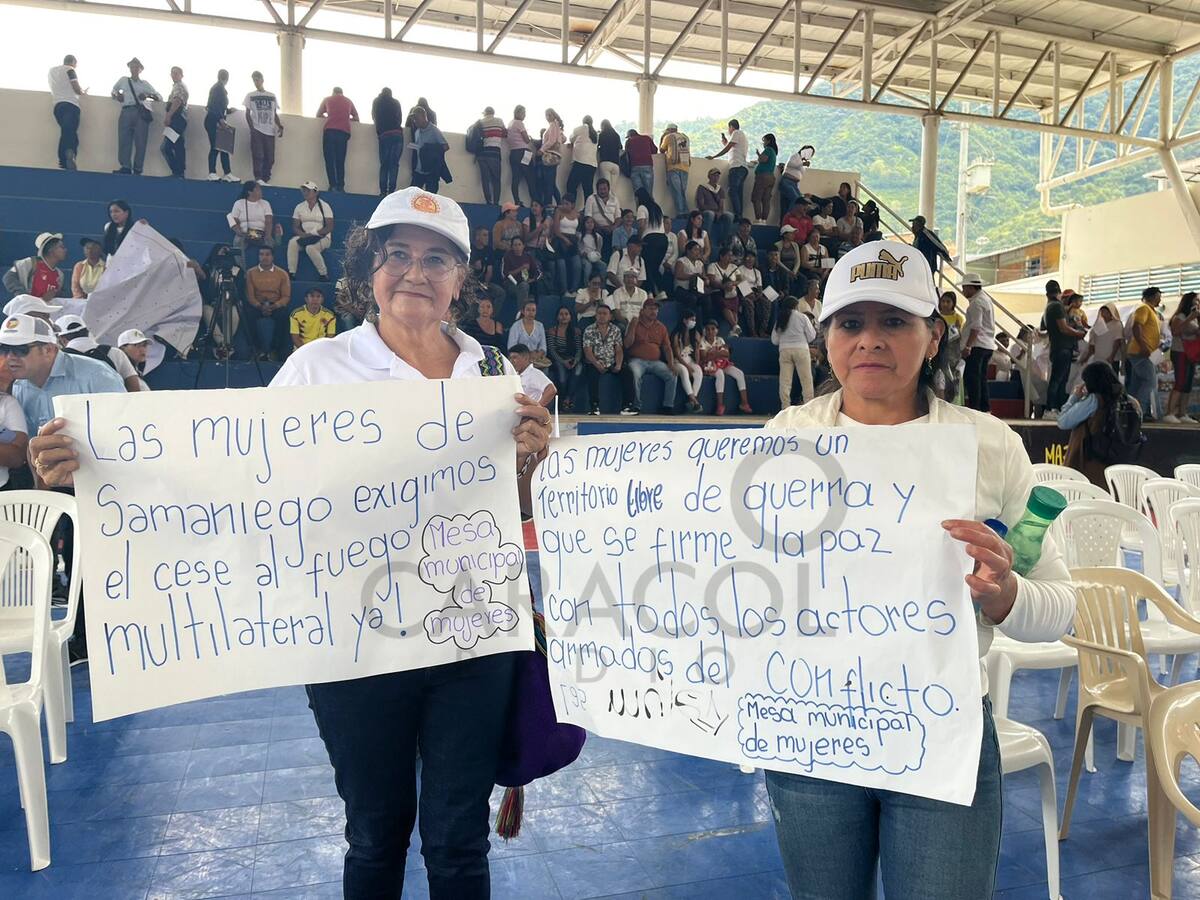 Las mujeres de
Samaniego exigimos
el cese al fuego
multilateral ya!
Mesa
municipal
de
mujeres
Las mujeres queremos un
Territorio libre de guerra y
que se firme la paz
con todos los actores
armados del conflicto.
Mesa municipal
de mujeres
PUMA
CARACOL
RADIO